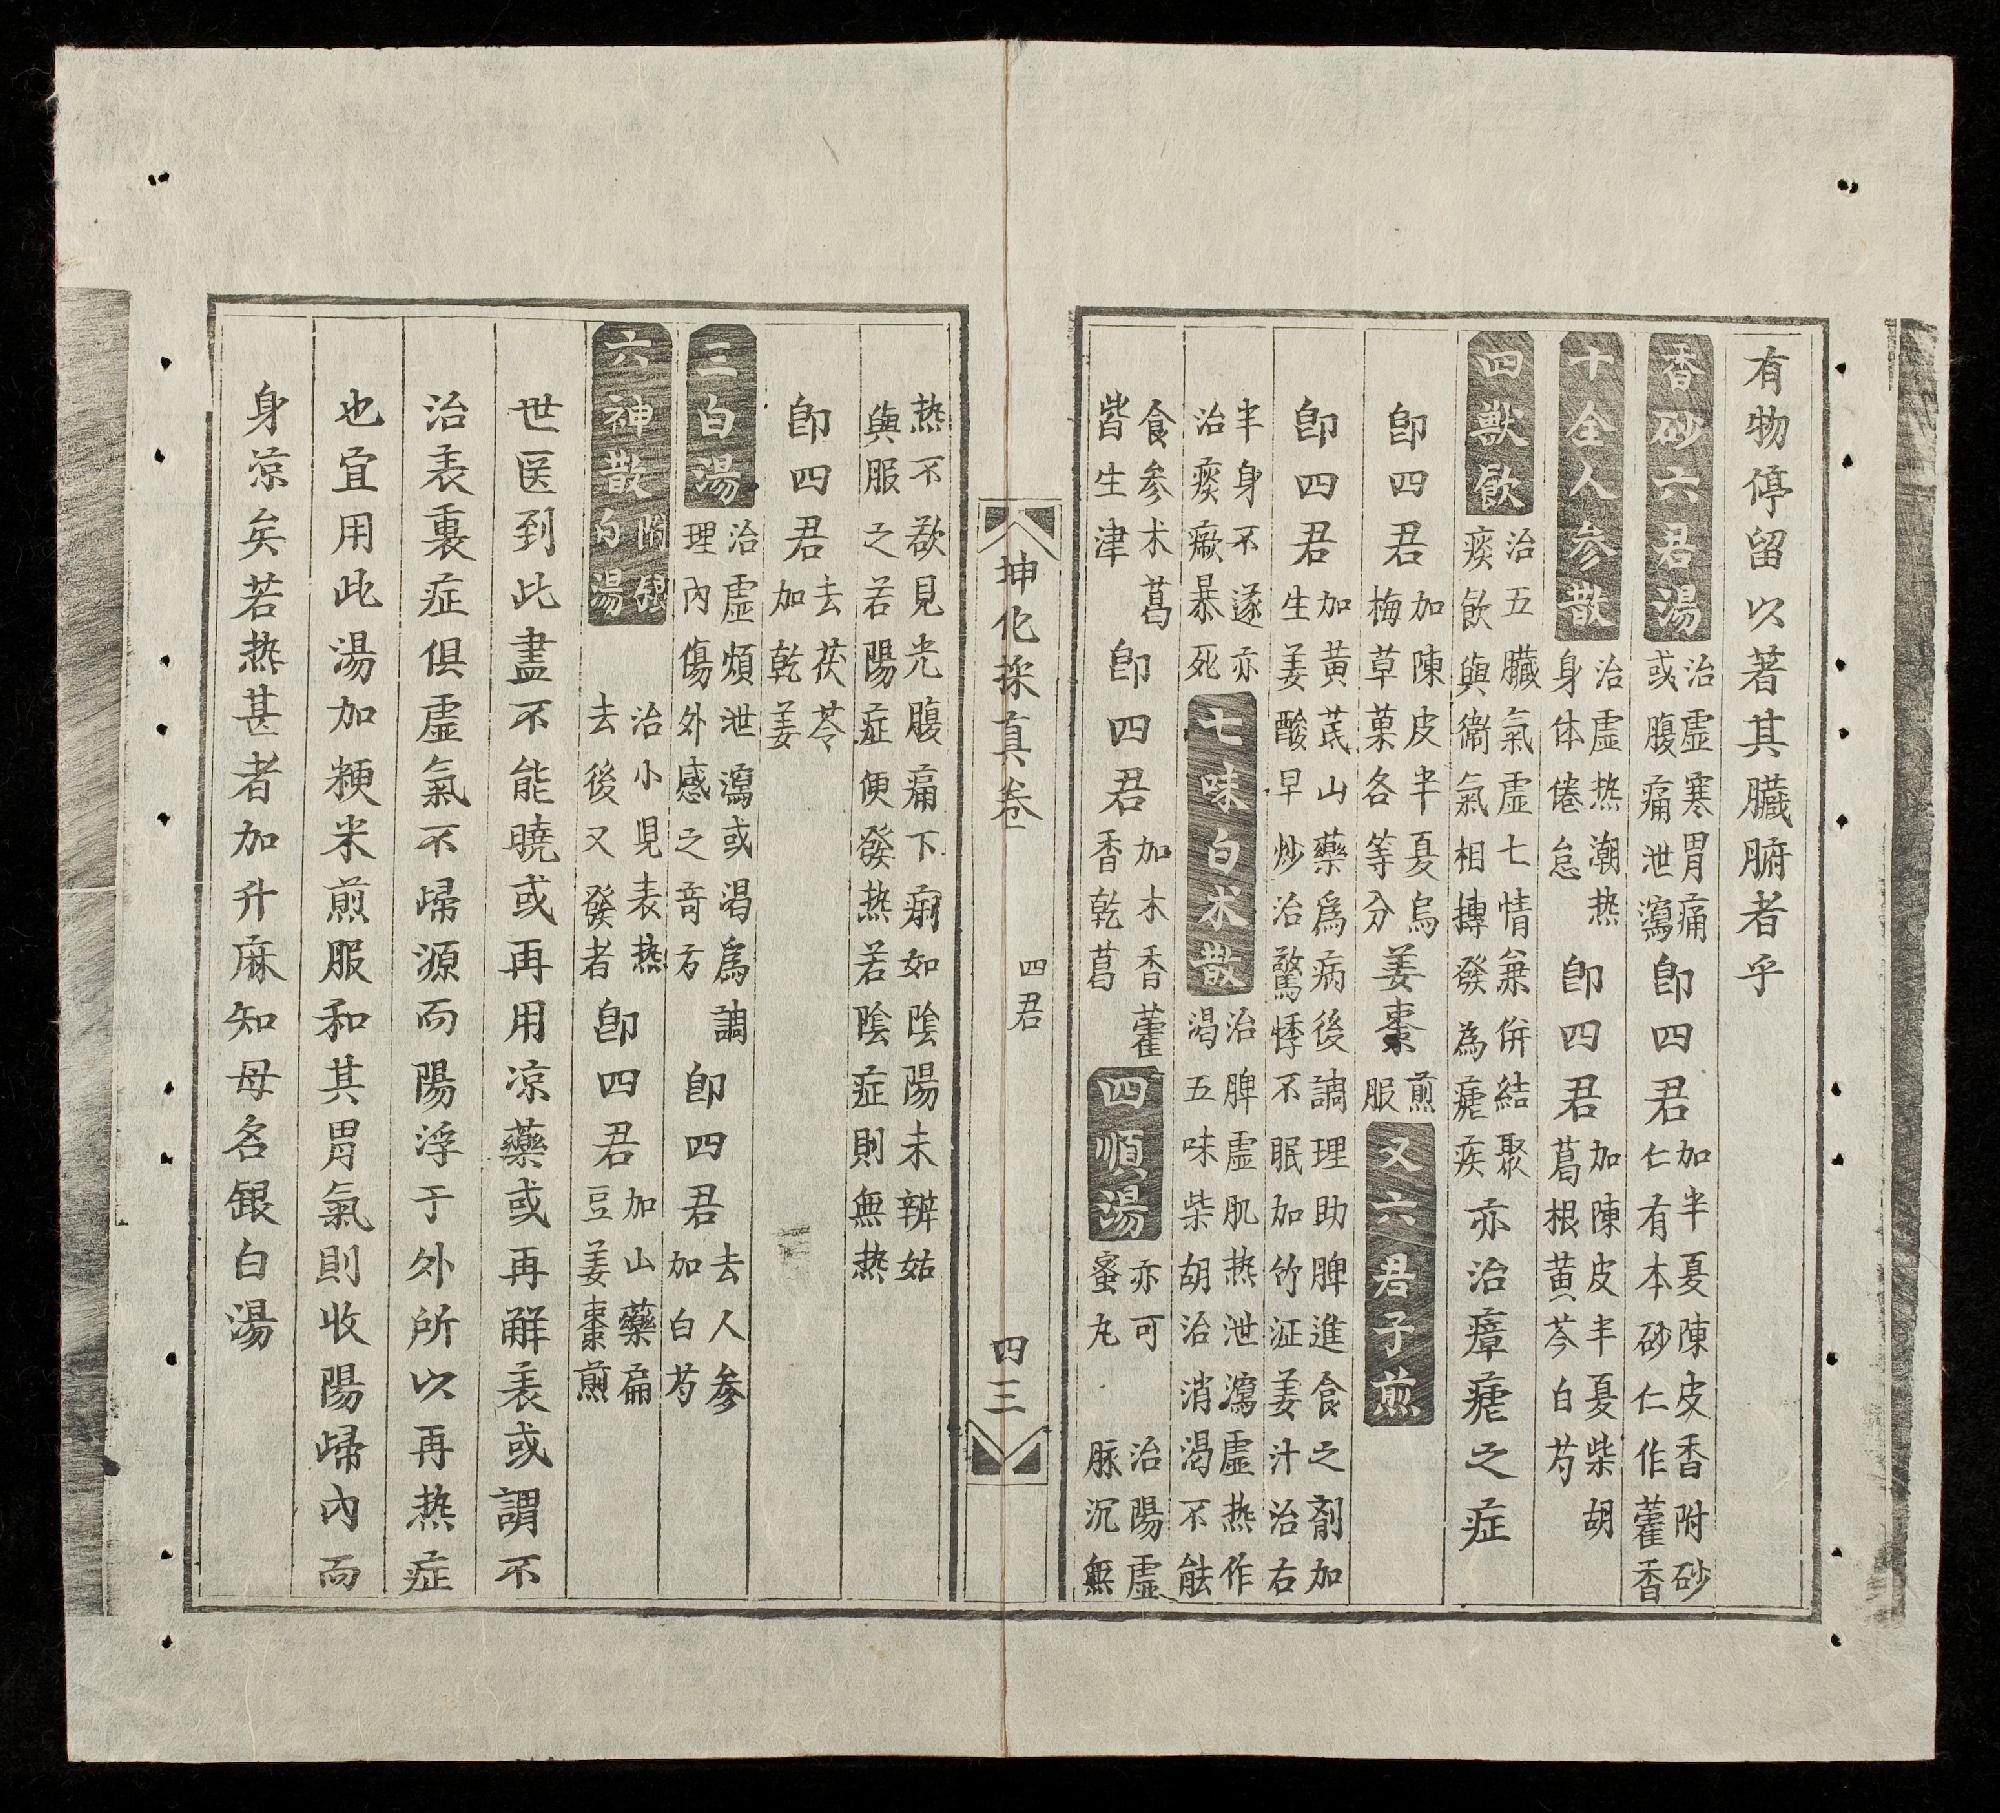 有物停留以著其臓腑者乎
香砂六君湯 治虛寒胃痛或腹痛泄瀉 即四君 加半夏陳皮香附砂仁有本砂仁作藿香
十全人参散 治虛热潮热身体倦怠 即四君 加陳皮半夏柴胡葛根黄芩白芍
四獸飲 治五臓氣虛七情兼併結聚痰飲與衛氣相摶發為瘧疾 亦治瘴瘧之症
即四君 加陳皮半夏烏梅草菓各等分 姜棗 煎服 又六君子煎
即四君 加黄芪山藥爲病後調理助脾進食之剤加生姜酸早炒治驚悸不眠加竹瀝姜汁治右
半身不遂亦治痰厥暴死 七味白朮散 治脾虛肌热泄瀉虛热作渴五味柴胡治消渴不能
食参朮葛皆生津 即四君 加木香藿香乾葛 四順湯 亦可蜜丸 治陽虛脉沉無
坤化採真卷一
四君
四三
热不欲見光腹痛下痢如陰陽未辨姑與服之若陽症便發热若陰症則無热
即四君 去茯苓加乾姜
三白湯 治虛煩泄瀉或渴爲調理內傷外感之奇方 即四君 去人参加白芍
六神散 附銀白湯 治小児表热去後又發者 即四君 加山藥扁豆姜棗煎
世医到此盡不能曉或再用凉藥或再觧表或謂不
治表裏症俱虛氣不歸源而陽浮于外所以再热症
也宜用此湯加粳米煎服和其胃氣則收陽歸內而
身凉矣若热甚者加升麻知母名銀白湯